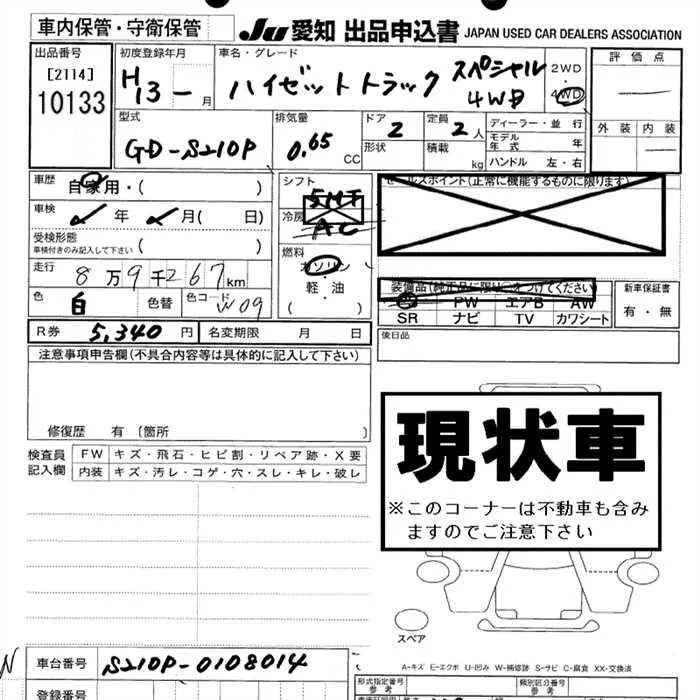 車内保管・守衛保管
Ju 愛知 出品申込書 JAPAN USED CAR DEALERS ASSOCIATION
出品番号
[2114]
10133
初度登録年月
H13 — 月
車名・グレード
ハイゼットトラック スペシャル
4WD
2WD
・
4WD
評価点
外装 内装
型式
GD-S210P
排気量
0.65 CC
ドア
2
形状
定員
2人
積載 kg
ディーラー・並行
モデル年式 年
ハンドル 左・右
車歴 自家用・( )
車検 年 月( 日)
受検形態
車検付きのみ記入して下さい ( )
走行 8万9千267km
色 白 色替 色コード W09
R券 5,340 円 名変期限 月 日
シフト
5MT
冷房
AC
燃料
ガソリン
・
軽・油
( )
セールスポイント(正常に機能するものに限ります)
装備品(純正品に限り○をつけてください)
PW エアB AW
SR ナビ TV カワシート
新車保証書
有・無
後日品
注意事項申告欄(不具合内容等は具体的に記入して下さい)
修復歴 有 〔箇所 〕
検査員記入欄
FW キズ・飛石・ヒビ割・リペア跡・X要
内装 キズ・汚レ・コゲ・穴・スレ・キレ・破レ
現状車
※このコーナーは不動車も含み
ますのでご注意下さい
スペア
A-キズ E-エクボ U-凹み W-補修跡 S-サビ C-腐食 XX-交換済
N
車台番号 S210P-0108014
登録番号
型式指定番号
参考
類別区分番号
参考